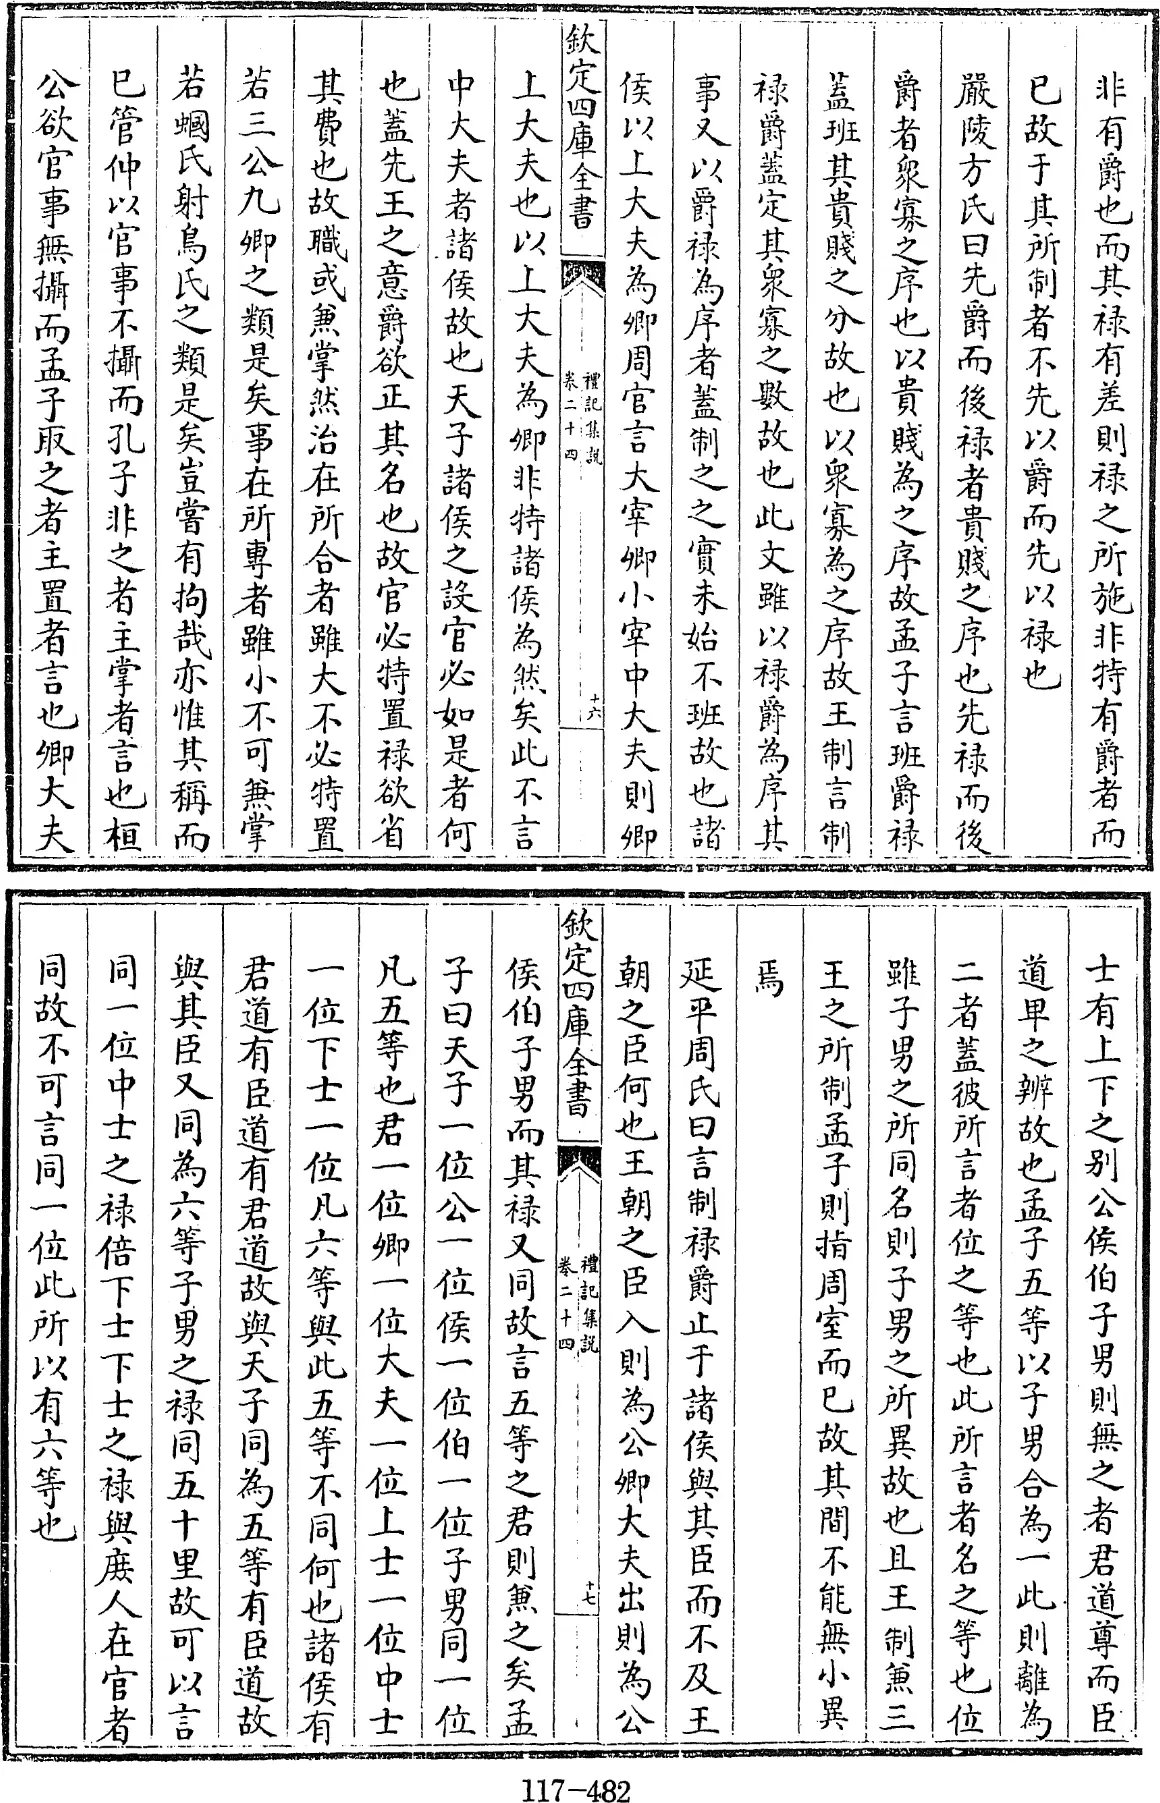 非有爵也而其禄有差則禄之所施非特有爵者而
已故于其所制者不先以爵而先以禄也
嚴陵方氏曰先爵而後禄者貴賤之序也先禄而後
爵者衆寡之序也以貴賤為之序故孟子言班爵禄
蓋班其貴賤之分故也以衆寡為之序故王制言制
禄爵蓋定其衆寡之數故也此文雖以禄爵為序其
事又以爵禄為序者蓋制之之實未始不班故也諸
侯以上大夫為卿周官言大宰卿小宰中大夫則卿
欽定四庫全書
禮記集説
卷二十四
十六
上大夫也以上大夫為卿非特諸侯為然矣此不言
中大夫者諸侯故也天子諸侯之設官必如是者何
也蓋先王之意爵欲正其名也故官必特置禄欲省
其費也故職或兼掌然治在所合者雖大不必特置
若三公九卿之類是矣事在所專者雖小不可兼掌
若蟈氏射鳥氏之類是矣豈嘗有拘哉亦惟其稱而
已管仲以官事不攝而孔子非之者主掌者言也桓
公欲官事無攝而孟子取之者主置者言也卿大夫
士有上下之别公侯伯子男則無之者君道尊而臣
道卑之辨故也孟子五等以子男合為一此則離為
二者蓋彼所言者位之等也此所言者名之等也位
雖子男之所同名則子男之所異故也且王制兼三
王之所制孟子則指周室而已故其間不能無小異
焉
延平周氏曰言制禄爵止于諸侯與其臣而不及王
朝之臣何也王朝之臣入則為公卿大夫出則為公
欽定四庫全書
禮記集説
卷二十四
十七
侯伯子男而其禄又同故言五等之君則兼之矣孟
子曰天子一位公一位侯一位伯一位子男同一位
凡五等也君一位卿一位大夫一位上士一位中士
一位下士一位凡六等與此五等不同何也諸侯有
君道有臣道有君道故與天子同為五等有臣道故
與其臣又同為六等子男之禄同五十里故可以言
同一位中士之禄倍下士下士之禄與庶人在官者
同故不可言同一位此所以有六等也
117-482